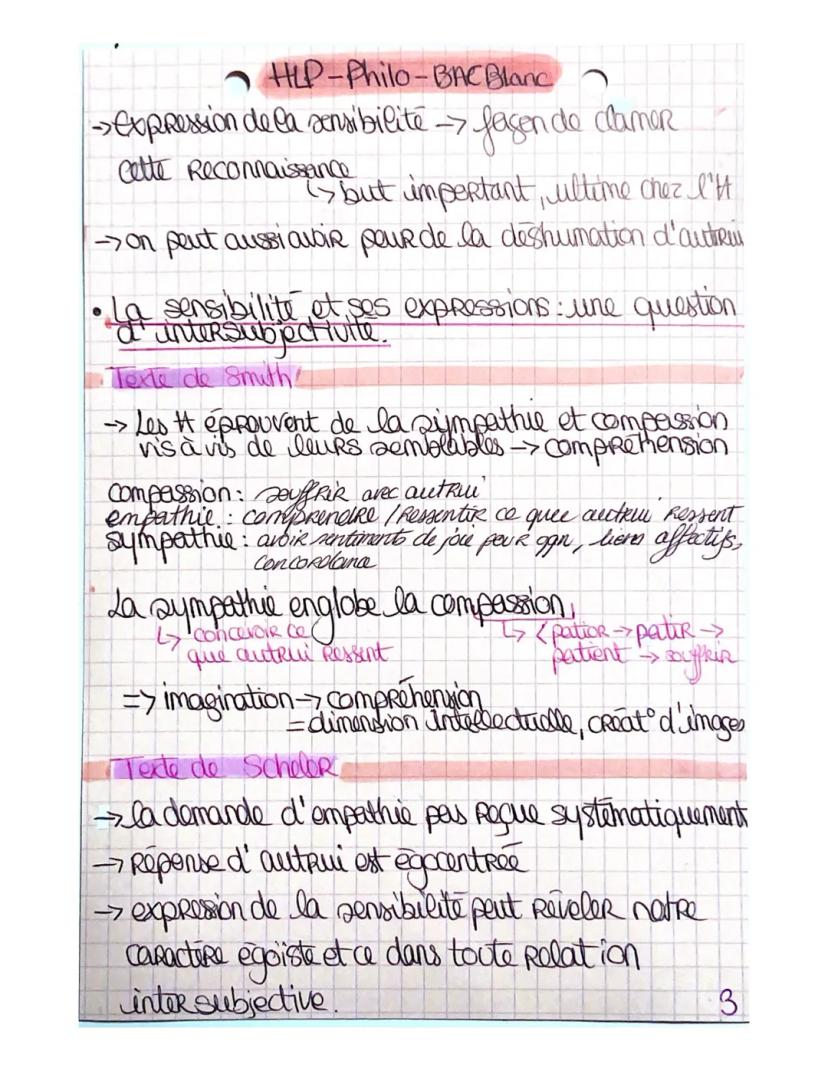 HLP-Philo-BAC Blanc
→ Expression de la sensibilité → façon de clamer
cette Reconnaissance
↳ but important, ultime chez l'H
→ on peut aussi avoir peur de la déshumation d'autrui
• La sensibilité et ses expressions : une question
d'intersubjectivité.
Texte de Smith
→ Les H éprouvent de la sympathie et compassion
vis à vis de leurs semblables → compréhension
compassion : souffrir avec autrui
empathie : comprendre / Ressentir ce que autrui ressent
sympathie : avoir sentiments de joie pour qqn, liens affectifs,
concordance
La sympathie englobe la compassion,
↳ concevoir ce
que autrui Ressent
↳ < patior → patir →
patient → souffrir
=> imagination → compréhension
= dimension intellectuelle, créat° d'images
Texte de Scheler
→ la demande d'empathie pas reçue systématiquement
→ Réponse d'autrui est égocentrée
→ expression de la sensibilité peut Révéler notre
caractère égoïste et ce dans toute relation
intersubjective.
3